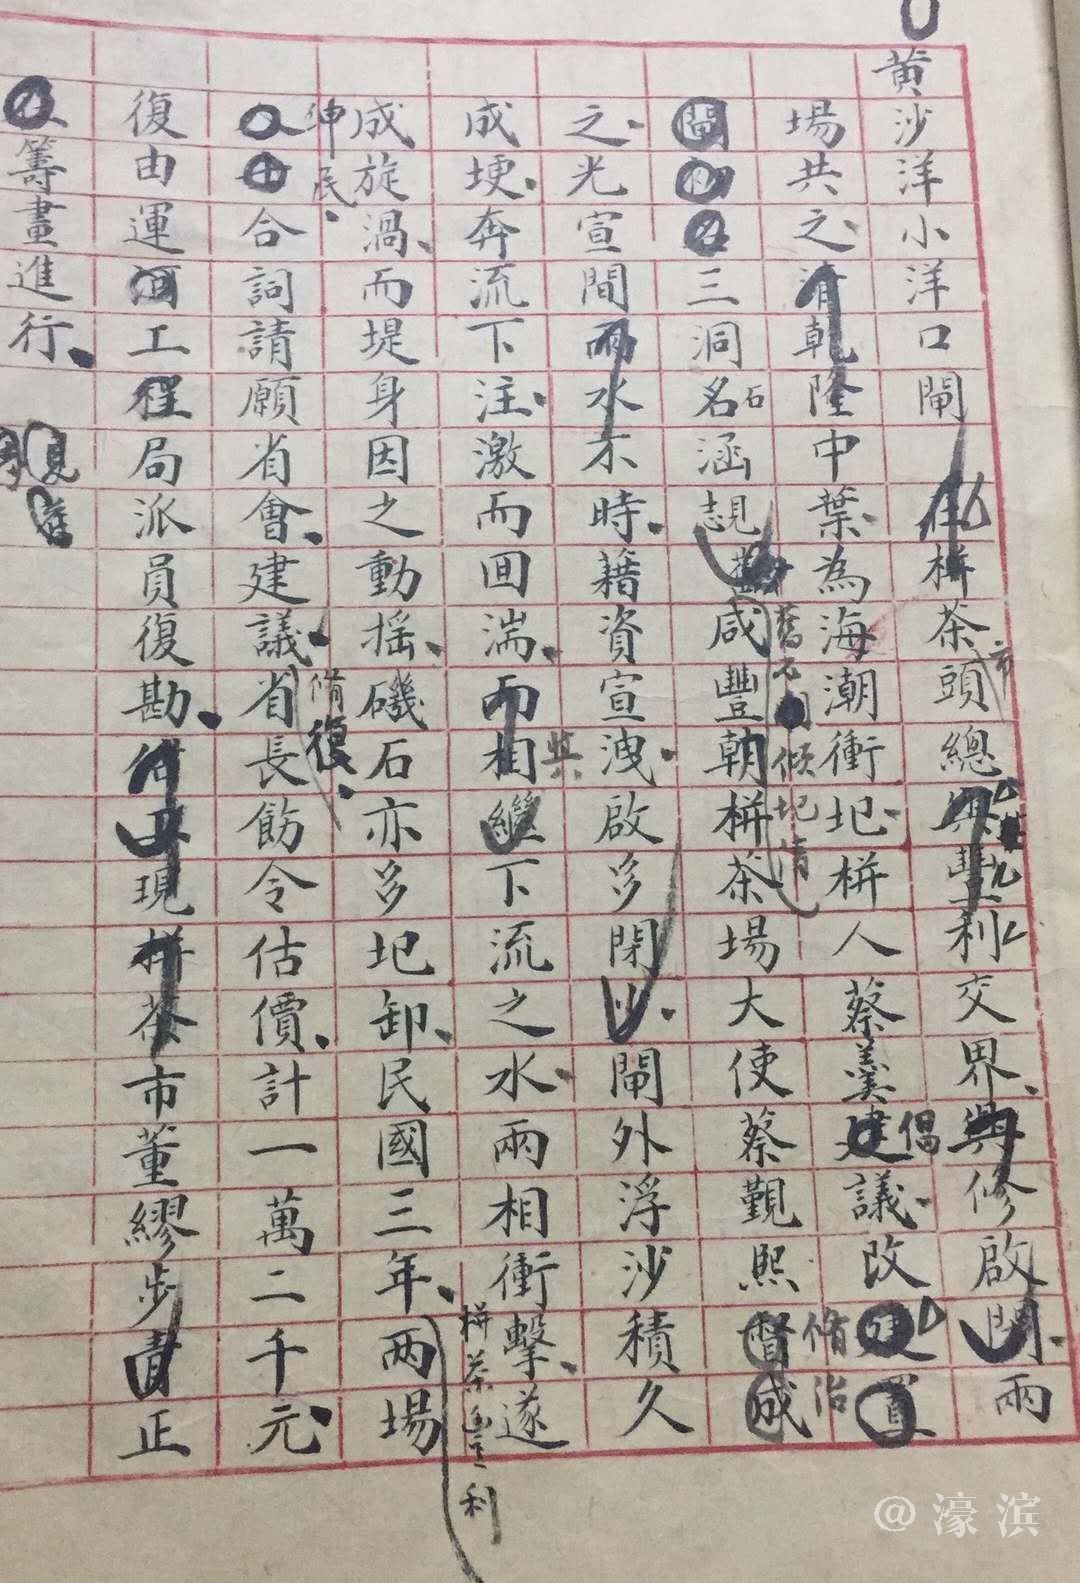 黃沙洋小洋口閘 在栟茶頭總與豐利交界興修啟閉兩
市
場共之清乾隆中葉為海潮衝圮栟人蔡羹建議改建置
倡
閘
三洞名涵覩 咸豐朝栟茶場大使蔡覲熙督成
石
志
舊 傾圮清
脩治
之光宣間雨水不時藉資宣洩啟多閉少閘外浮沙積久
成埂奔流下注激而回湍而相繼下流之水兩相衝擊遂
共
栟茶豐利
成旋渦而堤身因之動搖磯石亦多圮卸民國三年兩場
紳民
由合詞請願省會建議省長飭令估價計一萬二千元
脩復
復由運河工程局派員復勘 現栟茶市董繆步 正
籌畫進行
@濠滨